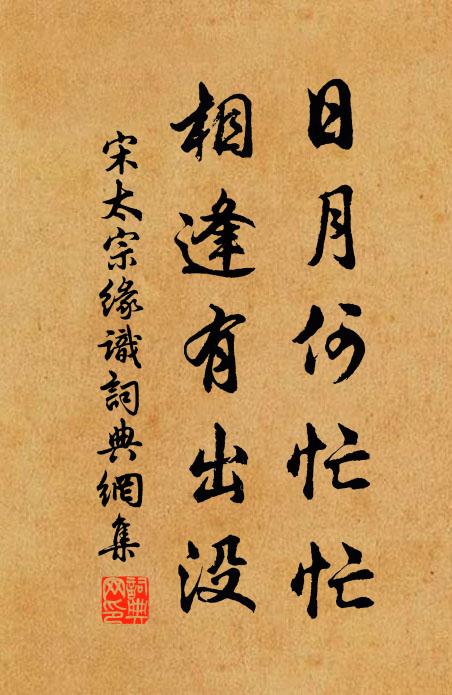 日月何忙忙
相逢有出没
宋太宗緣識詞典網集
詞典网印